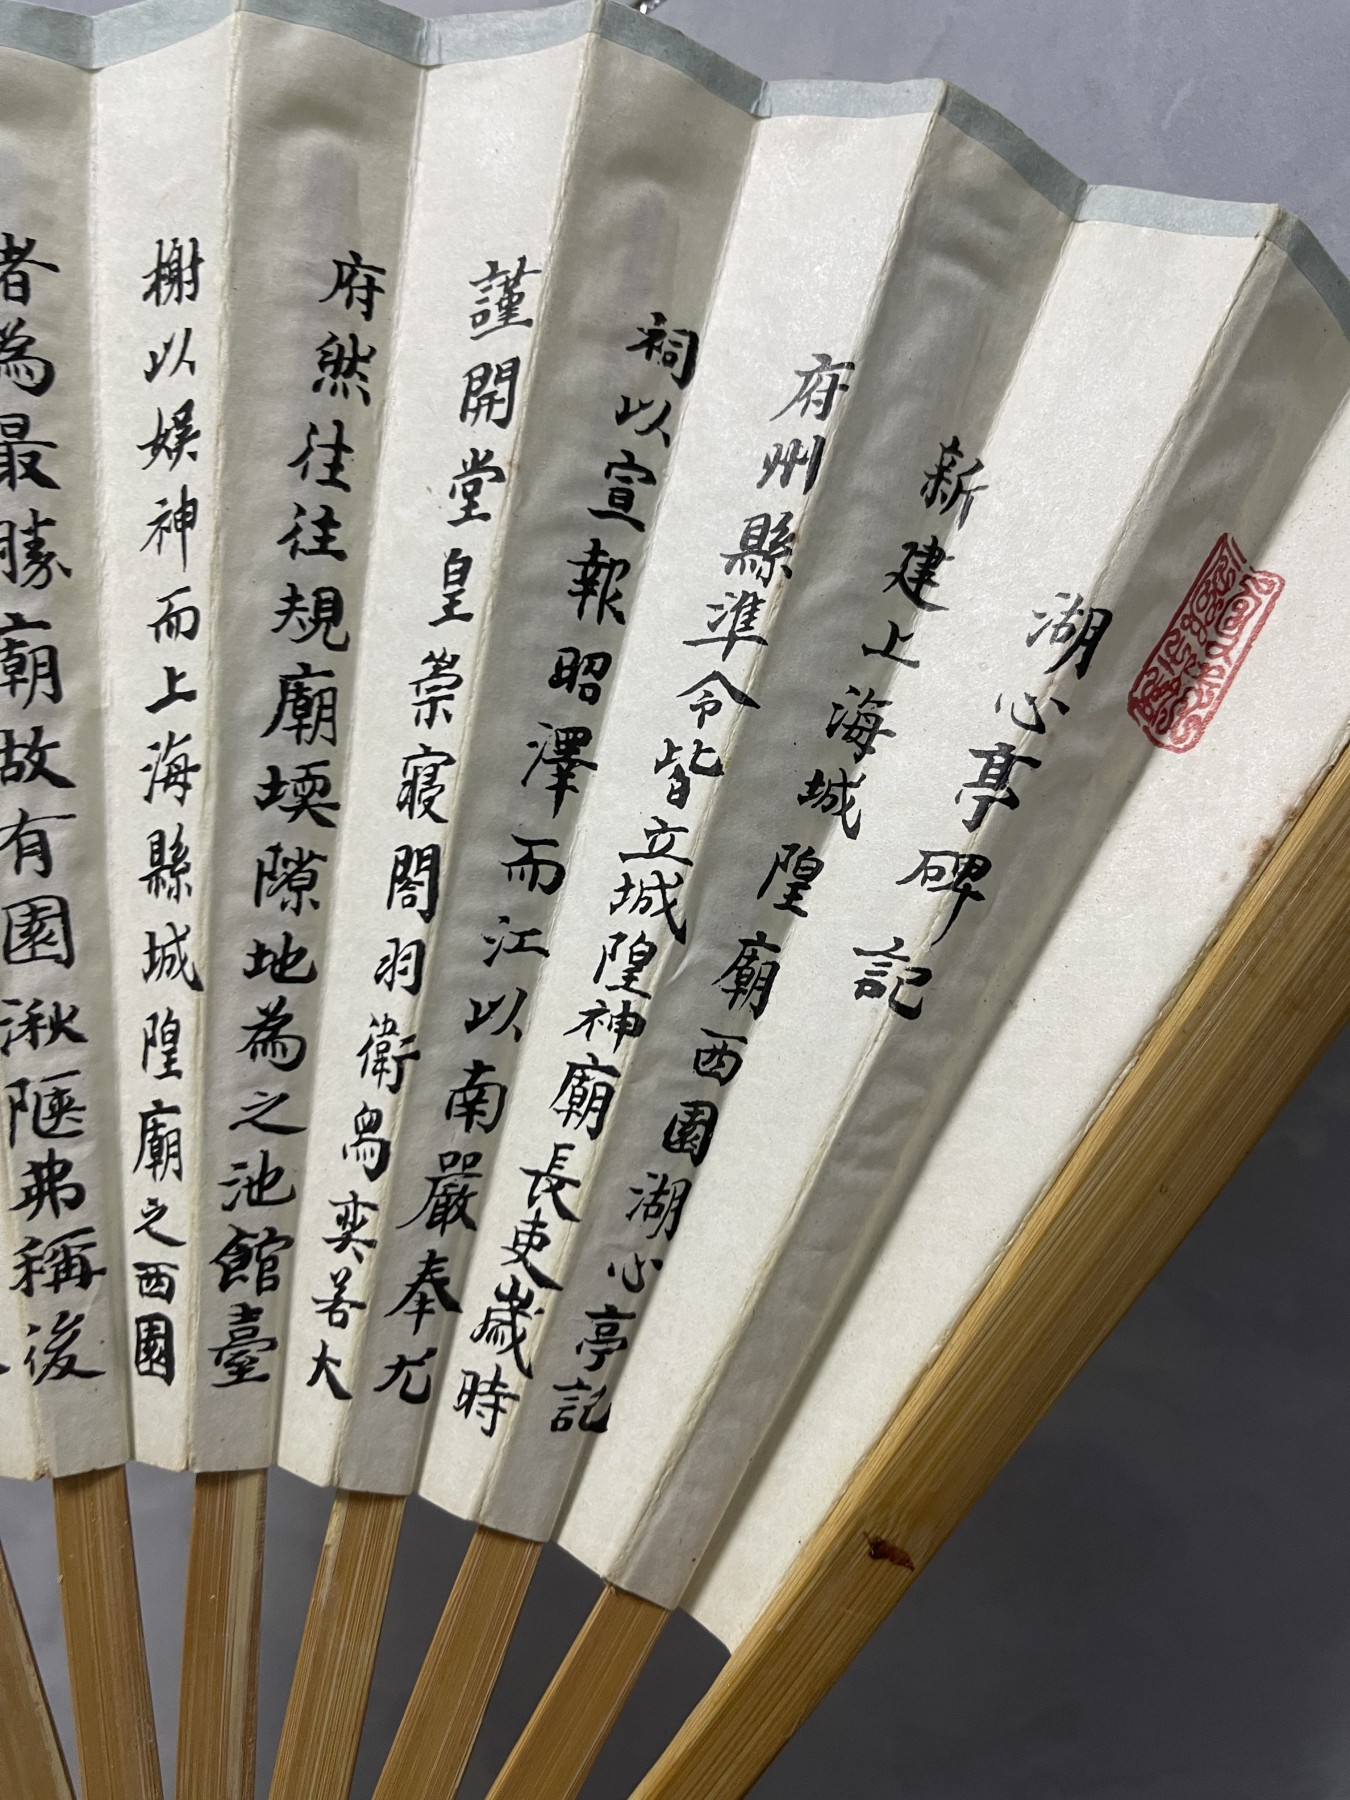 湖心亭碑記
新建上海城隍廟西園湖心亭記
府州縣準令皆立城隍神廟長吏歲時
祠以宣報昭澤而江以南嚴奉尤
謹開堂皇崇寢閣羽衛舄奕若大
府然往往規廟堧隙地為之池館臺
榭以娛神而上海縣城隍廟之西園
者為最勝廟故有園湫陋弗稱後